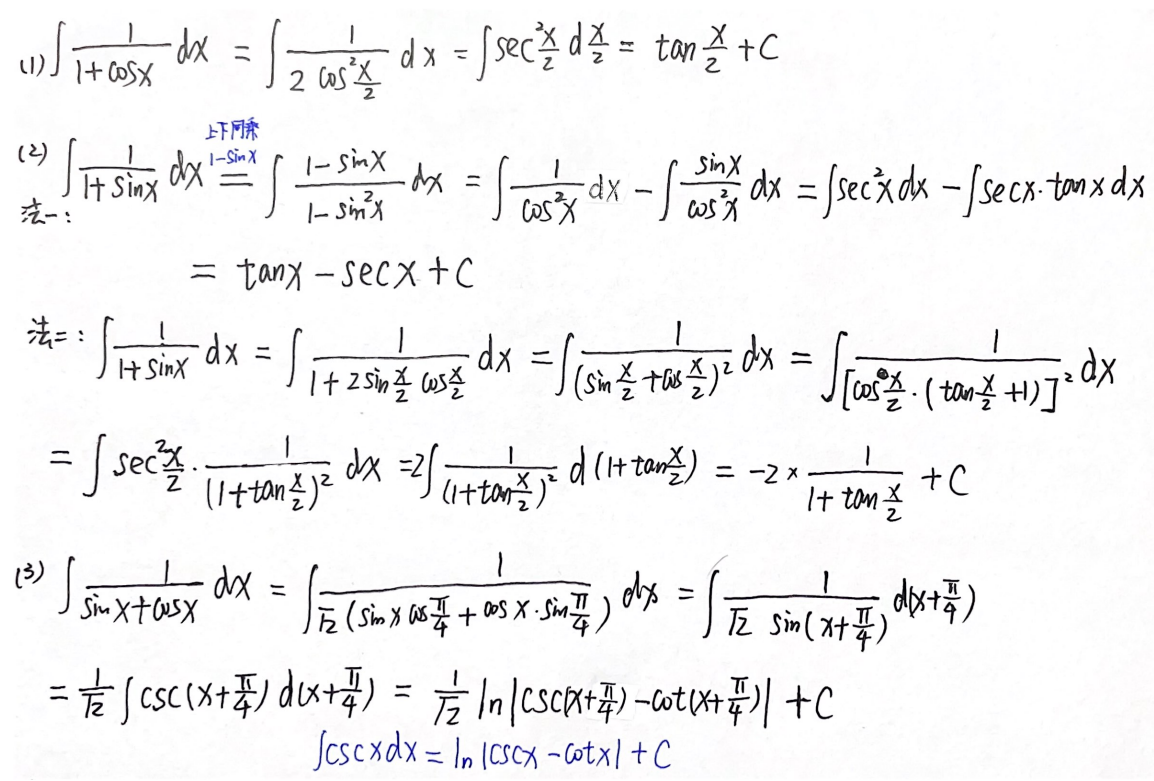 (1) ∫ 1/(1+cosx) dx = ∫ 1/(2cos²(x/2)) dx = ∫sec²(x/2) d(x/2) = tan(x/2) + C
上下同乘
1-sinx
(2) ∫ 1/(1+sinx) dx = ∫ (1-sinx)/(1-sin²x) dx = ∫ 1/(cos²x) dx - ∫ sinx/(cos²x) dx = ∫sec²x dx - ∫secx·tanx dx
法一:
= tanx - secx + C
法二: ∫ 1/(1+sinx) dx = ∫ 1/(1+2sin(x/2)cos(x/2)) dx = ∫ 1/(sin(x/2)+cos(x/2))² dx = ∫ 1/[cos(x/2)·(tan(x/2)+1)]² dx
= ∫ sec²(x/2)·1/(1+tan(x/2))² dx = 2∫ 1/(1+tan(x/2))² d(1+tan(x/2)) = -2 × 1/(1+tan(x/2)) + C
(3) ∫ 1/(sinx+cosx) dx = ∫ 1/(√2(sinx cos(π/4) + cosx·sin(π/4))) dx = ∫ 1/(√2 sin(x+π/4)) d(x+π/4)
= 1/√2 ∫csc(x+π/4) d(x+π/4) = 1/√2 ln|csc(x+π/4)-cot(x+π/4)| + C
∫cscxdx = ln|cscx-cotx| + C